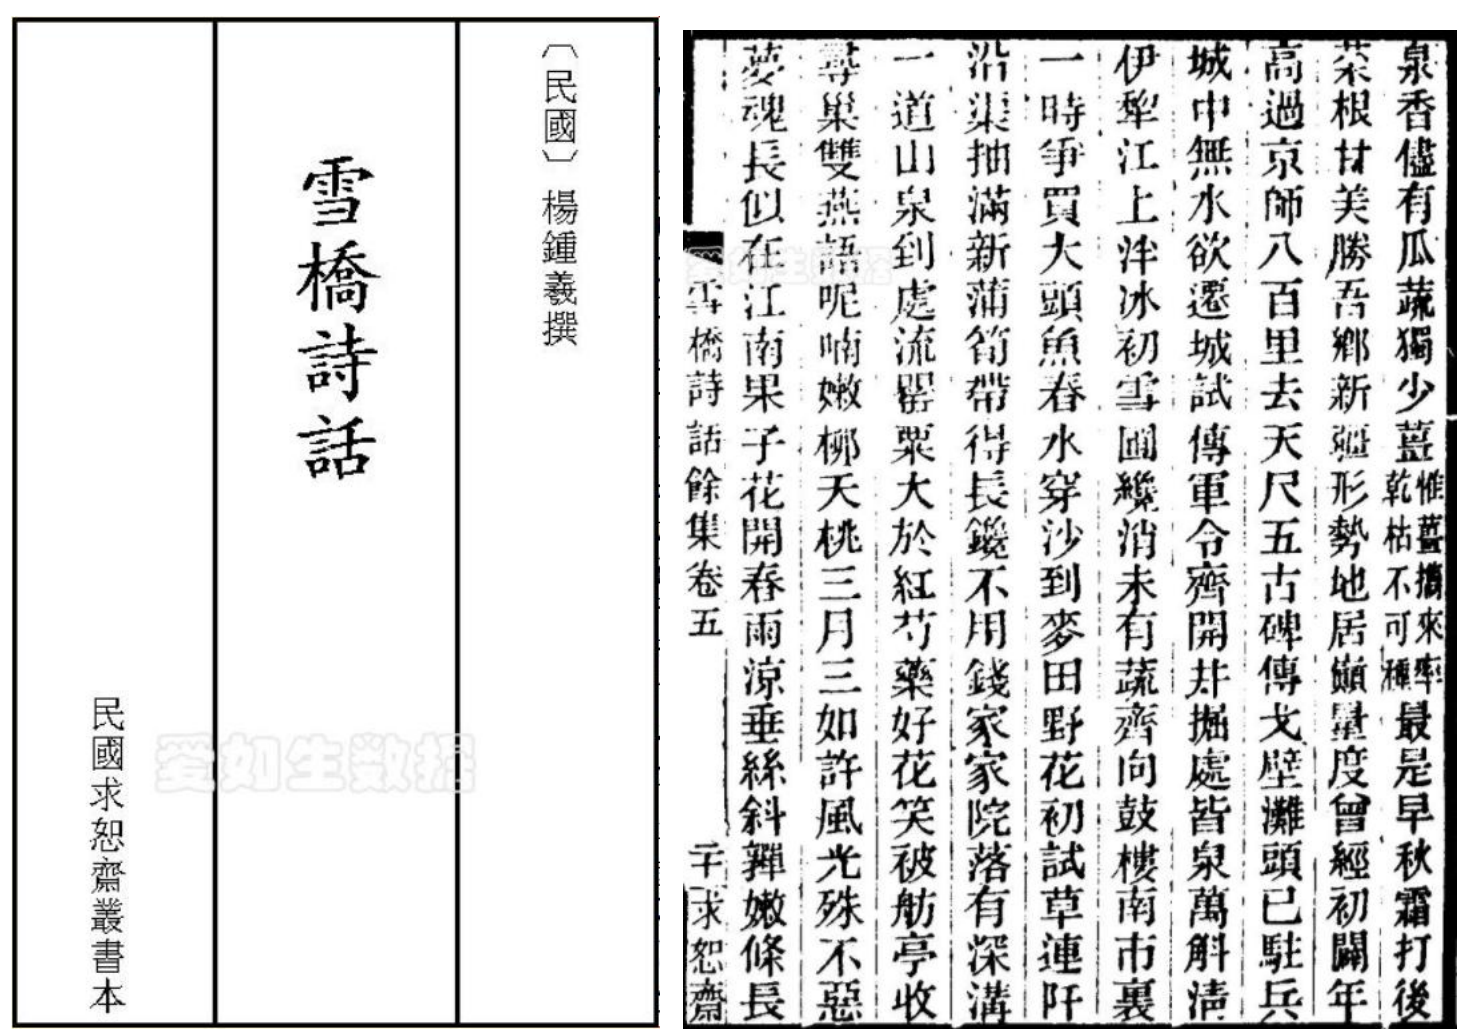 〔民國〕楊鍾羲撰
雪橋詩話
民國求恕齋叢書本
愛如生数据
泉香儘有瓜蔬獨少薑惟薑攜來率乾枯不可種最是早秋霜打後
菜根甘美勝吾鄉新疆形勢地居巔量度曾經初闢年
高過京師八百里去天尺五古碑傳戈壁灘頭已駐兵
城中無水欲遷城試傳軍令齊開井掘處皆泉萬斛淸
伊犂江上泮冰初雪圃纔消未有蔬齊向鼓樓南市裏
一時爭買大頭魚春水穿沙到麥田野花初試草連阡
沿渠抽滿新蒲筍帶得長鑱不用錢家家院落有深溝
一道山泉到處流罌粟大於紅芍藥好花笑被舫亭收
尋巢雙燕語呢喃嫩柳夭桃三月三如許風光殊不惡
夢魂長似在江南果子花開春雨涼垂絲斜嚲嫩條長
雪橋詩話餘集卷五 二十 求恕齋
愛如生数据